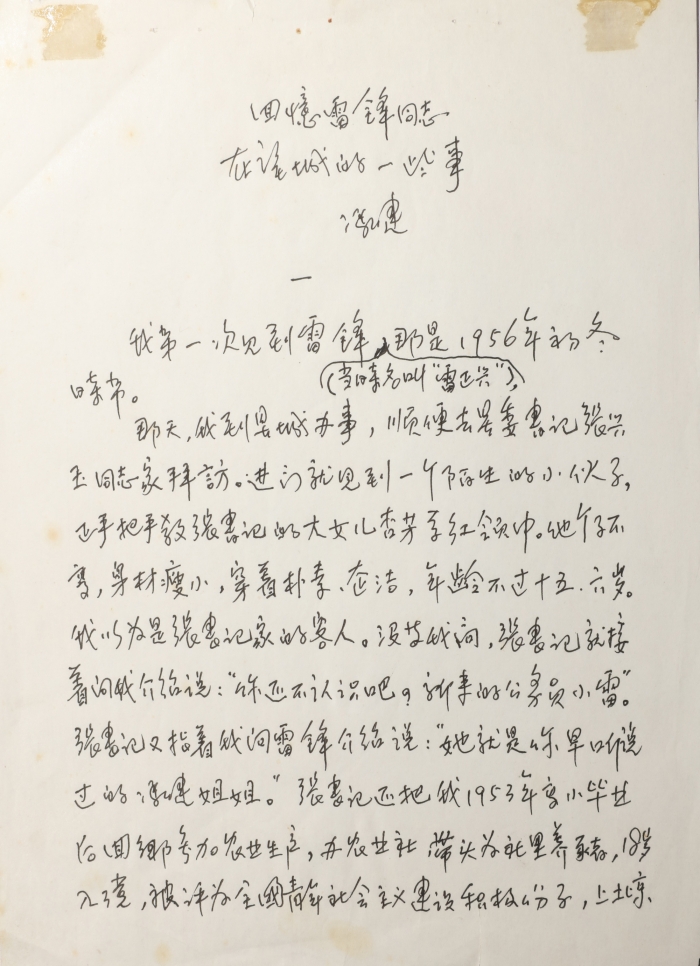 回憶雷锋同志
在望城的一些事
冯健
一
我第一次见到雷锋，那是1956年初冬
(当時名叫"雷正兴")，
時节。
那天，我到县城办事，顺便去县委書记張兴
玉同志家拜訪。进门就见到一个陌生的小伙子，
正手把手教張書记的大女儿杏芳系红领巾。他个子不
高，身材瘦小，穿着朴素、整洁，年龄不过十五、六岁。
我以为是張書记家的客人。没等我问，張書记就接
着向我介绍说："你还不认识吧？新来的公务员小雷。"
張書记又指着我向雷锋介绍说："她就是你早听说
过的冯健姐姐。"張書记还把我1953年高小毕业
后回鄉参加农业生产，办农业社，带头为社里养豬，18岁
入党，被评为全國青年社会主义建设积极份子，上北京